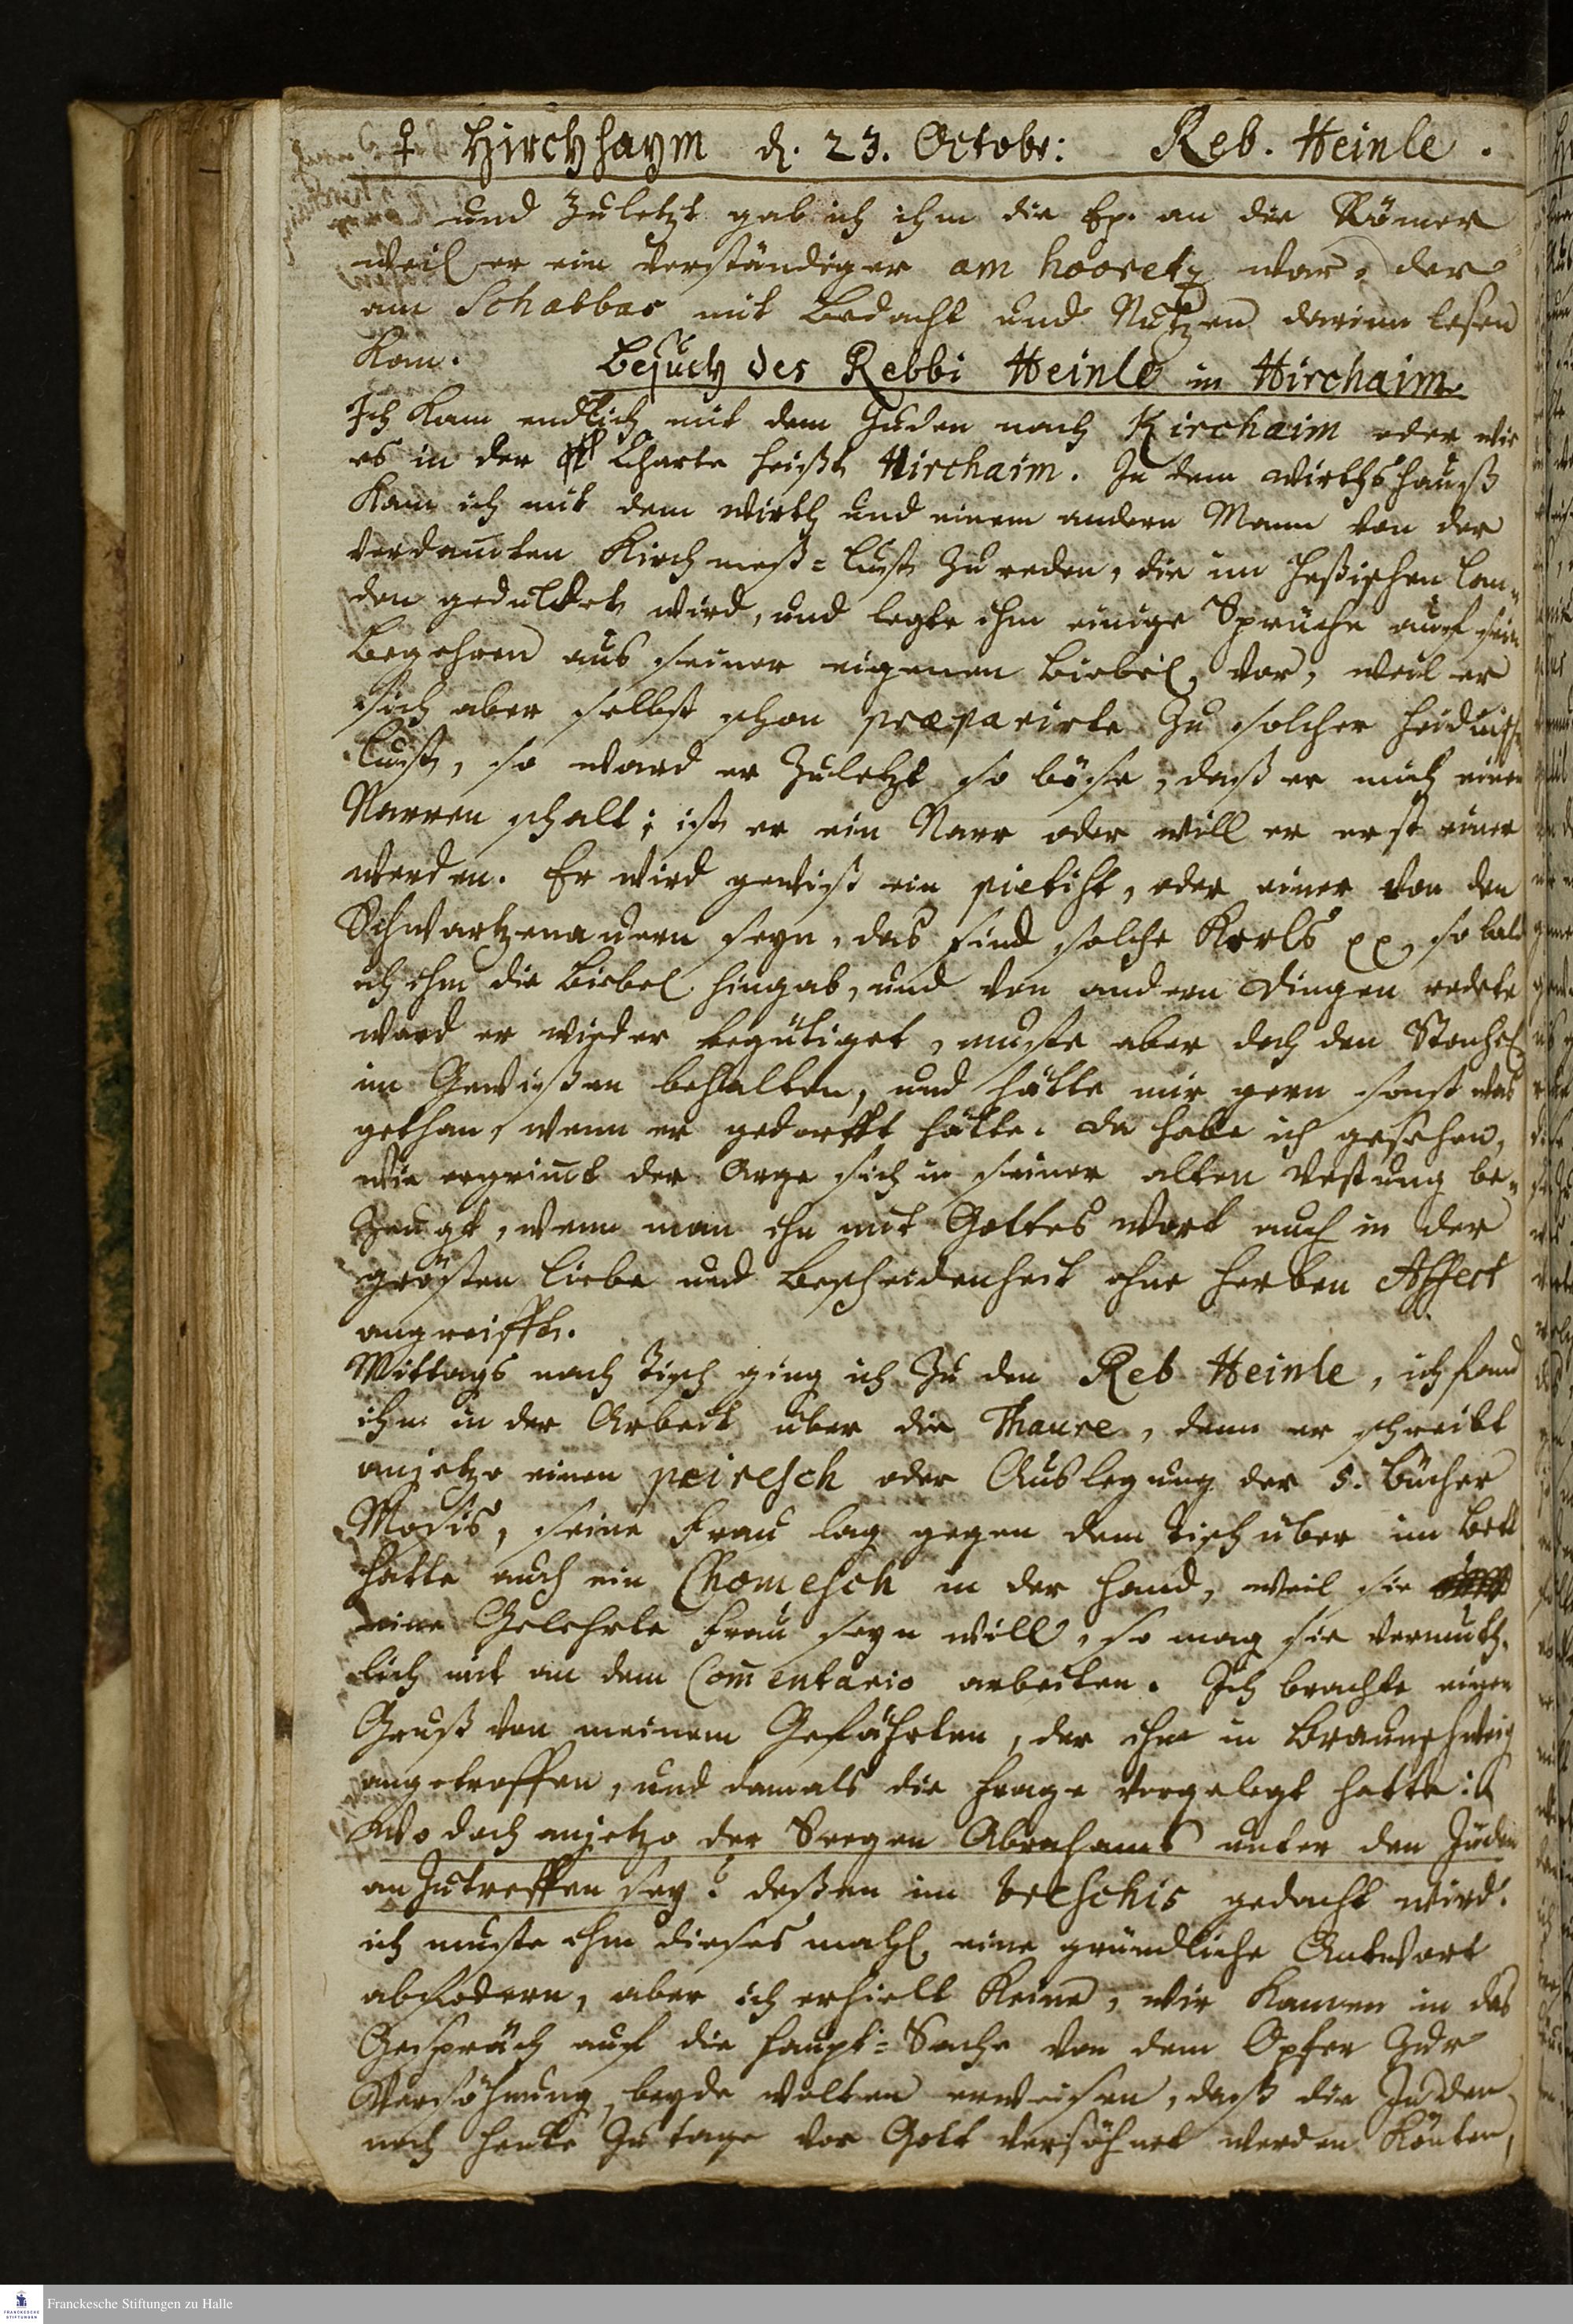 ♀ Hirchhaym d. 23. Octobr: Reb. Heinle.
und zuletzt gab ich ihm die Ep. an die Römer
weil er ein verständiger am hooretz war, der
am Schabbas mit Bedacht und Nutzen darinn lesen
kan.
Besuch des Rebbi Heinle in Hirchaim.
Ich kam endlich mit dem Juden nach Kirchaim oder wie
es in der Charte heißt Hirchaim. In dem Wirthshauß
kam ich mit dem Wirth und einem andern Mann von der
verdam̅ten Kirchmeß-Lust zu reden, die im Heßischen Lan-
den geduldet wird, und legte ihm einige Sprüche auf sein
Begehren aus seiner eigenen Biebel vor, weil er
sich aber selbst schon præparirte zu solcher heidnischen
Lust, so ward er zuletzt so böse, daß er mich einen
Narren schalt; ist er ein Narr oder will er erst einer
werden. Er wird gewiß ein pietist, oder einer von den
Schwartzenauern seyn, das sind solche Kerls pp, so bald
ich ihm die Biebel hingab, und von andern Dingen redete
ward er wieder begütiget, muste aber doch den Stachel
im Gewißen behalten, und hätte mir gern sonst was
gethan, wenn er gedorfft hätte. Da habe ich gesehen,
wie ergrim̅t der Arge sich in seiner alten Vestung be-
zeugt, wenn man ihn mit Gottes Wort auch in der
grösten Liebe und Bescheidenheit ohne herben Affect
angreifft.
Mittags nach Tisch ging ich zu den Reb Heinle, ich fand
ihn in der Arbeit über die Thaure, denn er schreibt
anjetzo einen peiresch oder Auslegung der 5. Bücher
Mosis, seine Frau lag gegen dem Tisch über im Bett
hatte auch ein Chomesch in der Hand, weil sie
eine Gelehrte Frau seyn will, so mag sie vermuth-
lich mit an dem Com̅entario arbeiten. Ich brachte einen
Gruß von meinem Gefährten, der ihn in Braunschweig
angetroffen, und damals die Frage vorgelegt hatte:
Wo doch anjetzo der Seegen Abrahams unter den Juden
anzutreffen sey? deßen im breschis gedacht wird.
ich muste ihm dieses mahl eine gründliche Antwort
abfodern, aber ich erhielt keine, wir kamen in das
Gespräch auf die Haupt-Sache von dem Opfer zur
Versöhnung, beyde wolten erweisen, daß die Juden
noch heute zu tage vor Gott versöhnet werden könten,
Franckesche Stiftungen zu Halle